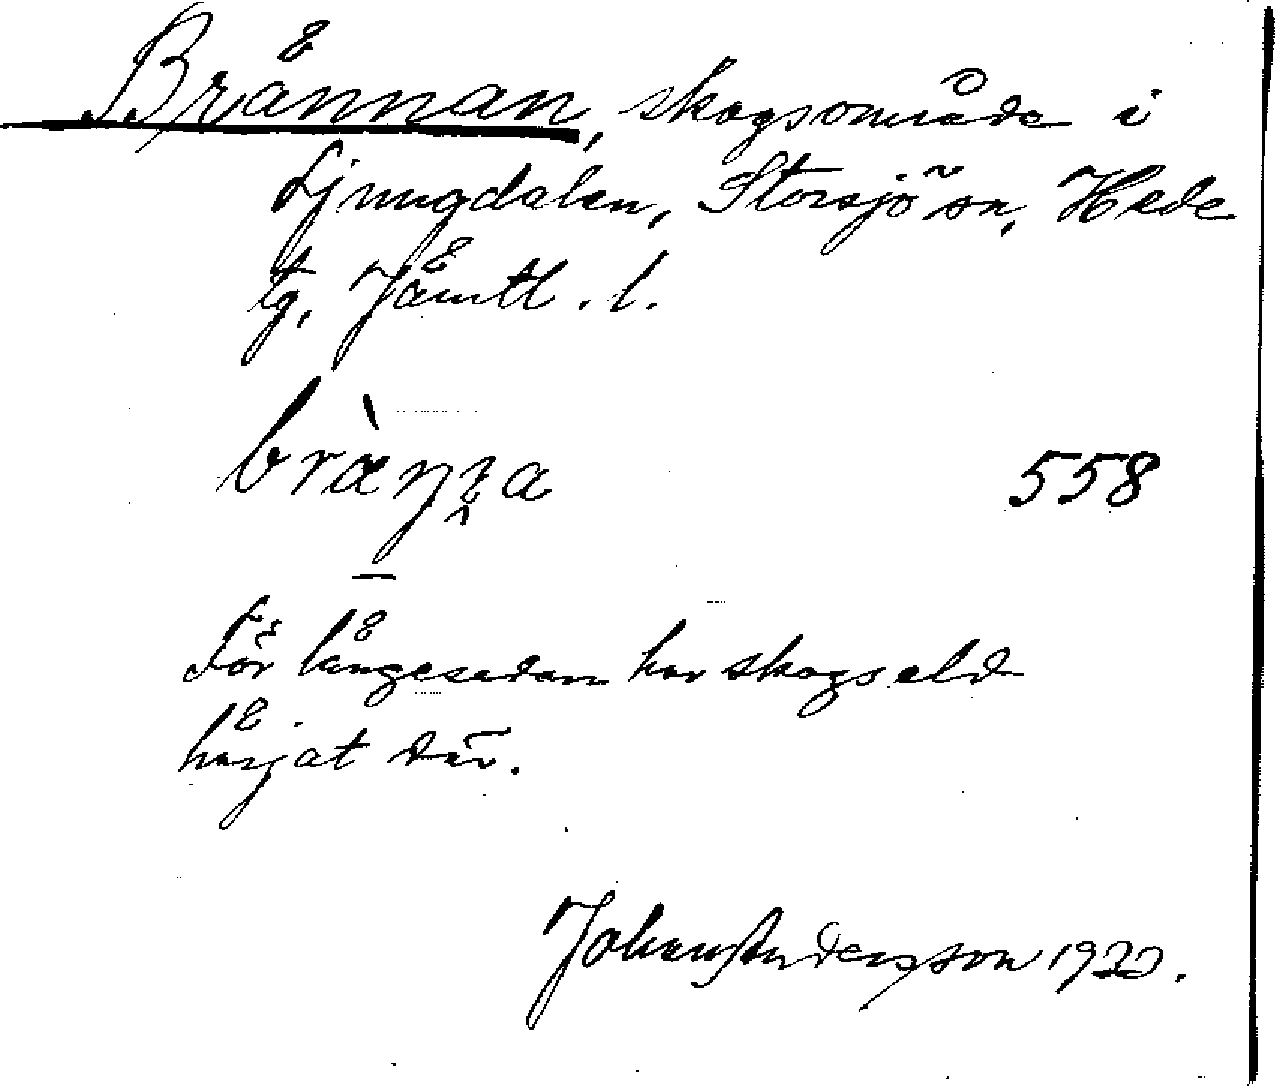 Brännan, skogsområde i
Ljungdalen, Storsjö sn, Hede
tg, Jämtl. l.
bràṇa 558
För längesedan har skogseld
härjat där.
Johan Andersson 1922.